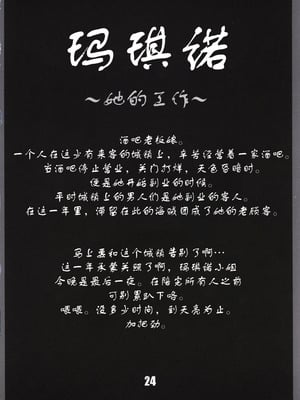 玛琪诺
～她的工作～
酒吧老板娘。
一个人在这少有来客的城镇上，辛苦经营着一家酒吧。
当酒吧停止营业，关门打烊，天色昏暗时。
便是她开始副业的时候。
平时城镇上的男人们是她副业的客人。
在这一年里，滞留在此的海贼团成了她的老顾客。
马上要和这个城镇告别了啊…
这一年承蒙关照了啊，玛琪诺小姐
今晚是最后一夜。在陪完所有人之前
可别累趴下咯。
喂喂。没多少时间，到天亮为止。
加把劲。
24